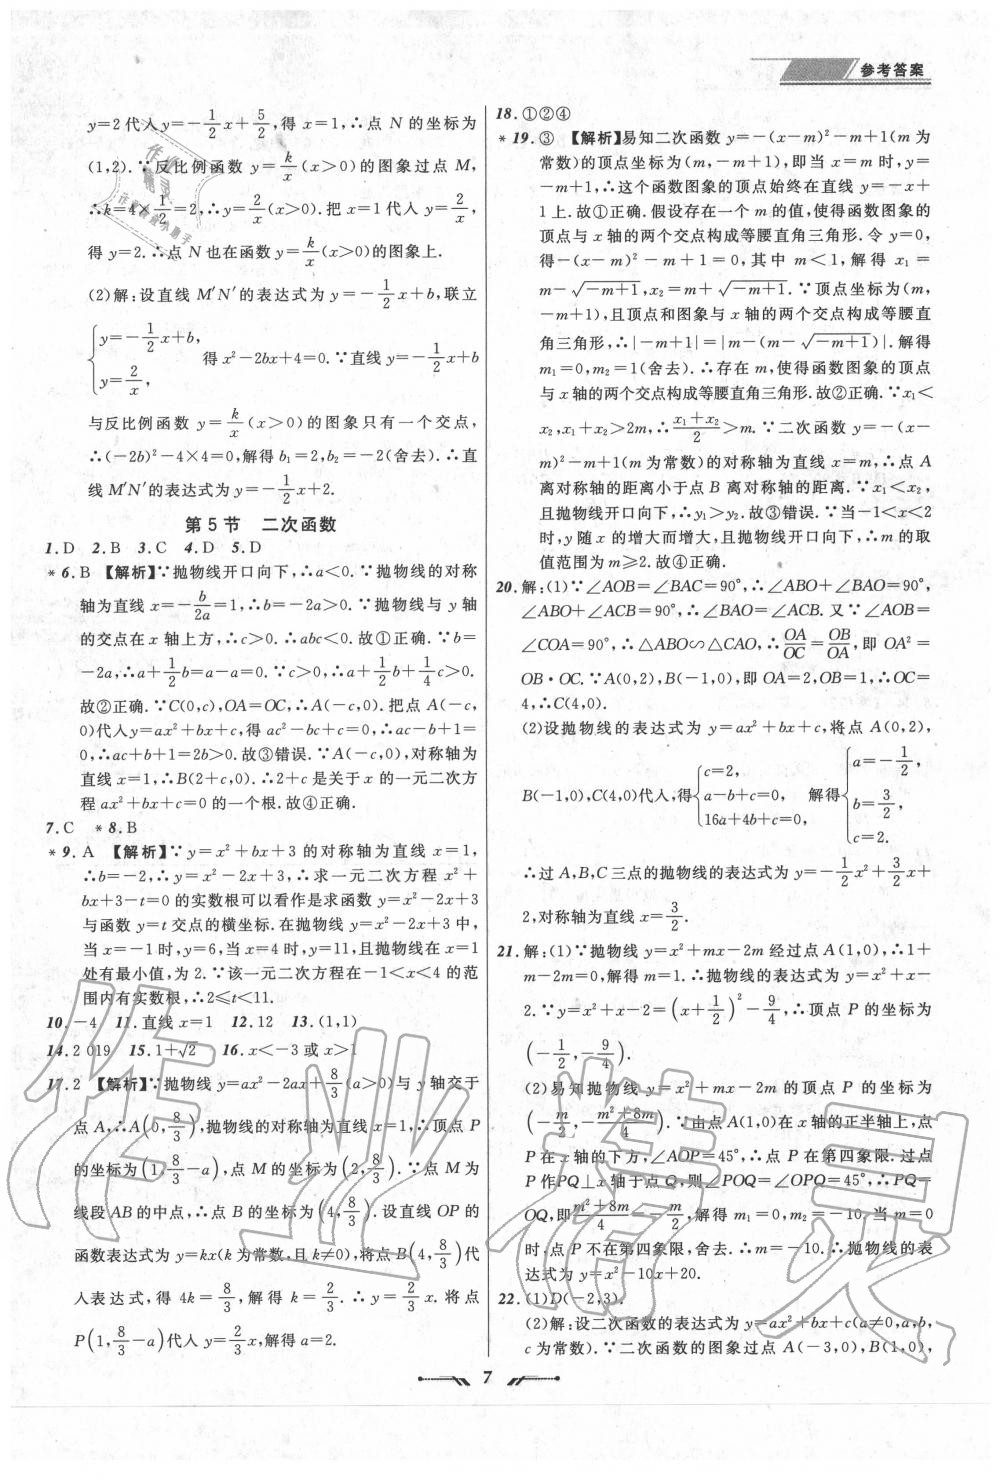 参考答案
y=2代入y=-1/2x+5/2,得 x=1,∴点 N 的坐标为
(1,2).∵反比例函数 y=k/x(x>0)的图象过点 M,
∴k=4×1/2=2,∴y=2/x(x>0).把 x=1代入 y=2/x,
得 y=2.∴点 N 也在函数 y=k/x(x>0)的图象上.
(2)解:设直线 M′N′的表达式为 y=-1/2x+b,联立
{y=-1/2x+b, y=2/x, 得 x²-2bx+4=0.∵直线 y=-1/2x+b
与反比例函数 y=k/x(x>0)的图象只有一个交点,
∴(-2b)²-4×4=0,解得 b₁=2,b₂=-2(舍去).∴直
线 M′N′的表达式为 y=-1/2x+2.
第 5 节 二次函数
1.D 2.B 3.C 4.D 5.D
*6.B 【解析】∵抛物线开口向下,∴a<0.∵抛物线的对称
轴为直线 x=-b/2a=1,∴b=-2a>0.∵抛物线与 y 轴
的交点在 x 轴上方,∴c>0.∴abc<0.故①正确.∵b=
-2a,∴a+1/2b=a-a=0.∵c>0,∴a+1/2b+1/4c>0.
故②正确.∵C(0,c),OA=OC,∴A(-c,0).把点 A(-c,
0)代入y=ax²+bx+c,得 ac²-bc+c=0,∴ac-b+1=
0,∴ac+b+1=2b>0.故③错误.∵A(-c,0),对称轴为
直线 x=1,∴B(2+c,0).∴2+c是关于 x 的一元二次方
程 ax²+bx+c=0 的一个根.故④正确.
7.C *8.B
*9.A 【解析】∵y=x²+bx+3 的对称轴为直线 x=1,
∴b=-2,∴y=x²-2x+3,∴求一元二次方程 x²+
bx+3-t=0的实数根可以看作是求函数 y=x²-2x+3
与函数 y=t 交点的横坐标.在抛物线 y=x²-2x+3 中,
当 x=-1 时,y=6,当 x=4 时,y=11,且抛物线在 x=1
处有最小值,为 2.∵该一元二次方程在-1<x<4 的范
围内有实数根,∴2≤t<11.
10.-4 11.直线 x=1 12.12 13.(1,1)
14.2 019 15.1+√2 16.x<-3 或 x>1
17.2 【解析】∵抛物线 y=ax²-2ax+8/3(a>0)与 y轴交于
点 A,∴A(0,8/3),抛物线的对称轴为直线 x=1,∴顶点 P
的坐标为(1,8/3-a),点 M 的坐标为(2,8/3).∵点 M 为
线段 AB 的中点,∴点 B 的坐标为(4,8/3).设直线 OP 的
函数表达式为 y=kx(k 为常数,且 k≠0),将点 B(4,8/3)代
入表达式,得 4k=8/3,解得 k=2/3.∴y=2/3x.将点
P(1,8/3-a)代入 y=2/3x,解得 a=2.
18.①②④
*19.③ 【解析】易知二次函数 y=-(x-m)²-m+1(m 为
常数)的顶点坐标为(m,-m+1),即当 x=m 时,y=
-m+1,∴这个函数图象的顶点始终在直线 y=-x+
1上.故①正确.假设存在一个 m 的值,使得函数图象的
顶点与 x 轴的两个交点构成等腰直角三角形.令 y=0,
得-(x-m)²-m+1=0,其中 m<1,解得 x₁=
m-√-m+1,x₂=m+√-m+1.∵顶点坐标为(m,
-m+1),且顶点和图象与 x 轴的两个交点构成等腰直
角三角形,∴|-m+1|=|m-(m-√-m+1)|.解得
m₁=0,m₂=1(舍去).∴存在 m,使得函数图象的顶点
与 x 轴的两个交点构成等腰直角三角形.故②正确.∵x₁<
x₂,x₁+x₂>2m,∴(x₁+x₂)/2>m.∵二次函数 y=-(x-
m)²-m+1(m 为常数)的对称轴为直线 x=m,∴点 A
离对称轴的距离小于点 B 离对称轴的距离.∵x₁<x₂,
且抛物线开口向下,∴y₁>y₂.故③错误.∵当-1<x<2
时,y 随 x 的增大而增大,且抛物线开口向下,∴m 的取
值范围为 m≥2.故④正确.
20.解:(1)∵∠AOB=∠BAC=90°,∴∠ABO+∠BAO=90°,
∠ABO+∠ACB=90°,∴∠BAO=∠ACB.又∵∠AOB=
∠COA=90°,∴△ABO∽△CAO,∴OA/OC=OB/OA,即 OA²=
OB·OC.∵A(0,2),B(-1,0),即 OA=2,OB=1,∴OC=
4,∴C(4,0).
(2)设抛物线的表达式为 y=ax²+bx+c,将点 A(0,2),
B(-1,0),C(4,0)代入,得{c=2, a-b+c=0, 16a+4b+c=0, 解得{a=-1/2, b=3/2, c=2.
∴过 A,B,C 三点的抛物线的表达式为 y=-1/2x²+3/2x+
2,对称轴为直线 x=3/2.
21.解:(1)∵抛物线 y=x²+mx-2m 经过点 A(1,0),∴1+
m-2m=0,解得 m=1.∴抛物线的表达式为 y=x²+x-
2.∵y=x²+x-2=(x+1/2)²-9/4,∴顶点 P 的坐标为
(-1/2,-9/4).
(2)易知抛物线 y=x²+mx-2m 的顶点 P 的坐标为
(-m/2,-(m²+8m)/4).∵由点 A(1,0)在 x 轴的正半轴上,点
P 在 x 轴的下方,∠AOP=45°,∴点 P 在第四象限.过点
P 作 PQ⊥x 轴于点 Q,则∠POQ=∠OPQ=45°,∴PQ=
OQ,即(m²+8m)/4=-m/2,解得 m₁=0,m₂=-10.当 m=0
时,点 P 不在第四象限,舍去.∴m=-10.∴抛物线的表
达式为 y=x²-10x+20.
22.(1)D(-2,3).
(2)解:设二次函数的表达式为 y=ax²+bx+c(a,b,
c 为常数).∵二次函数的图象过点 A(-3,0),B(1,0),
7
作业精灵